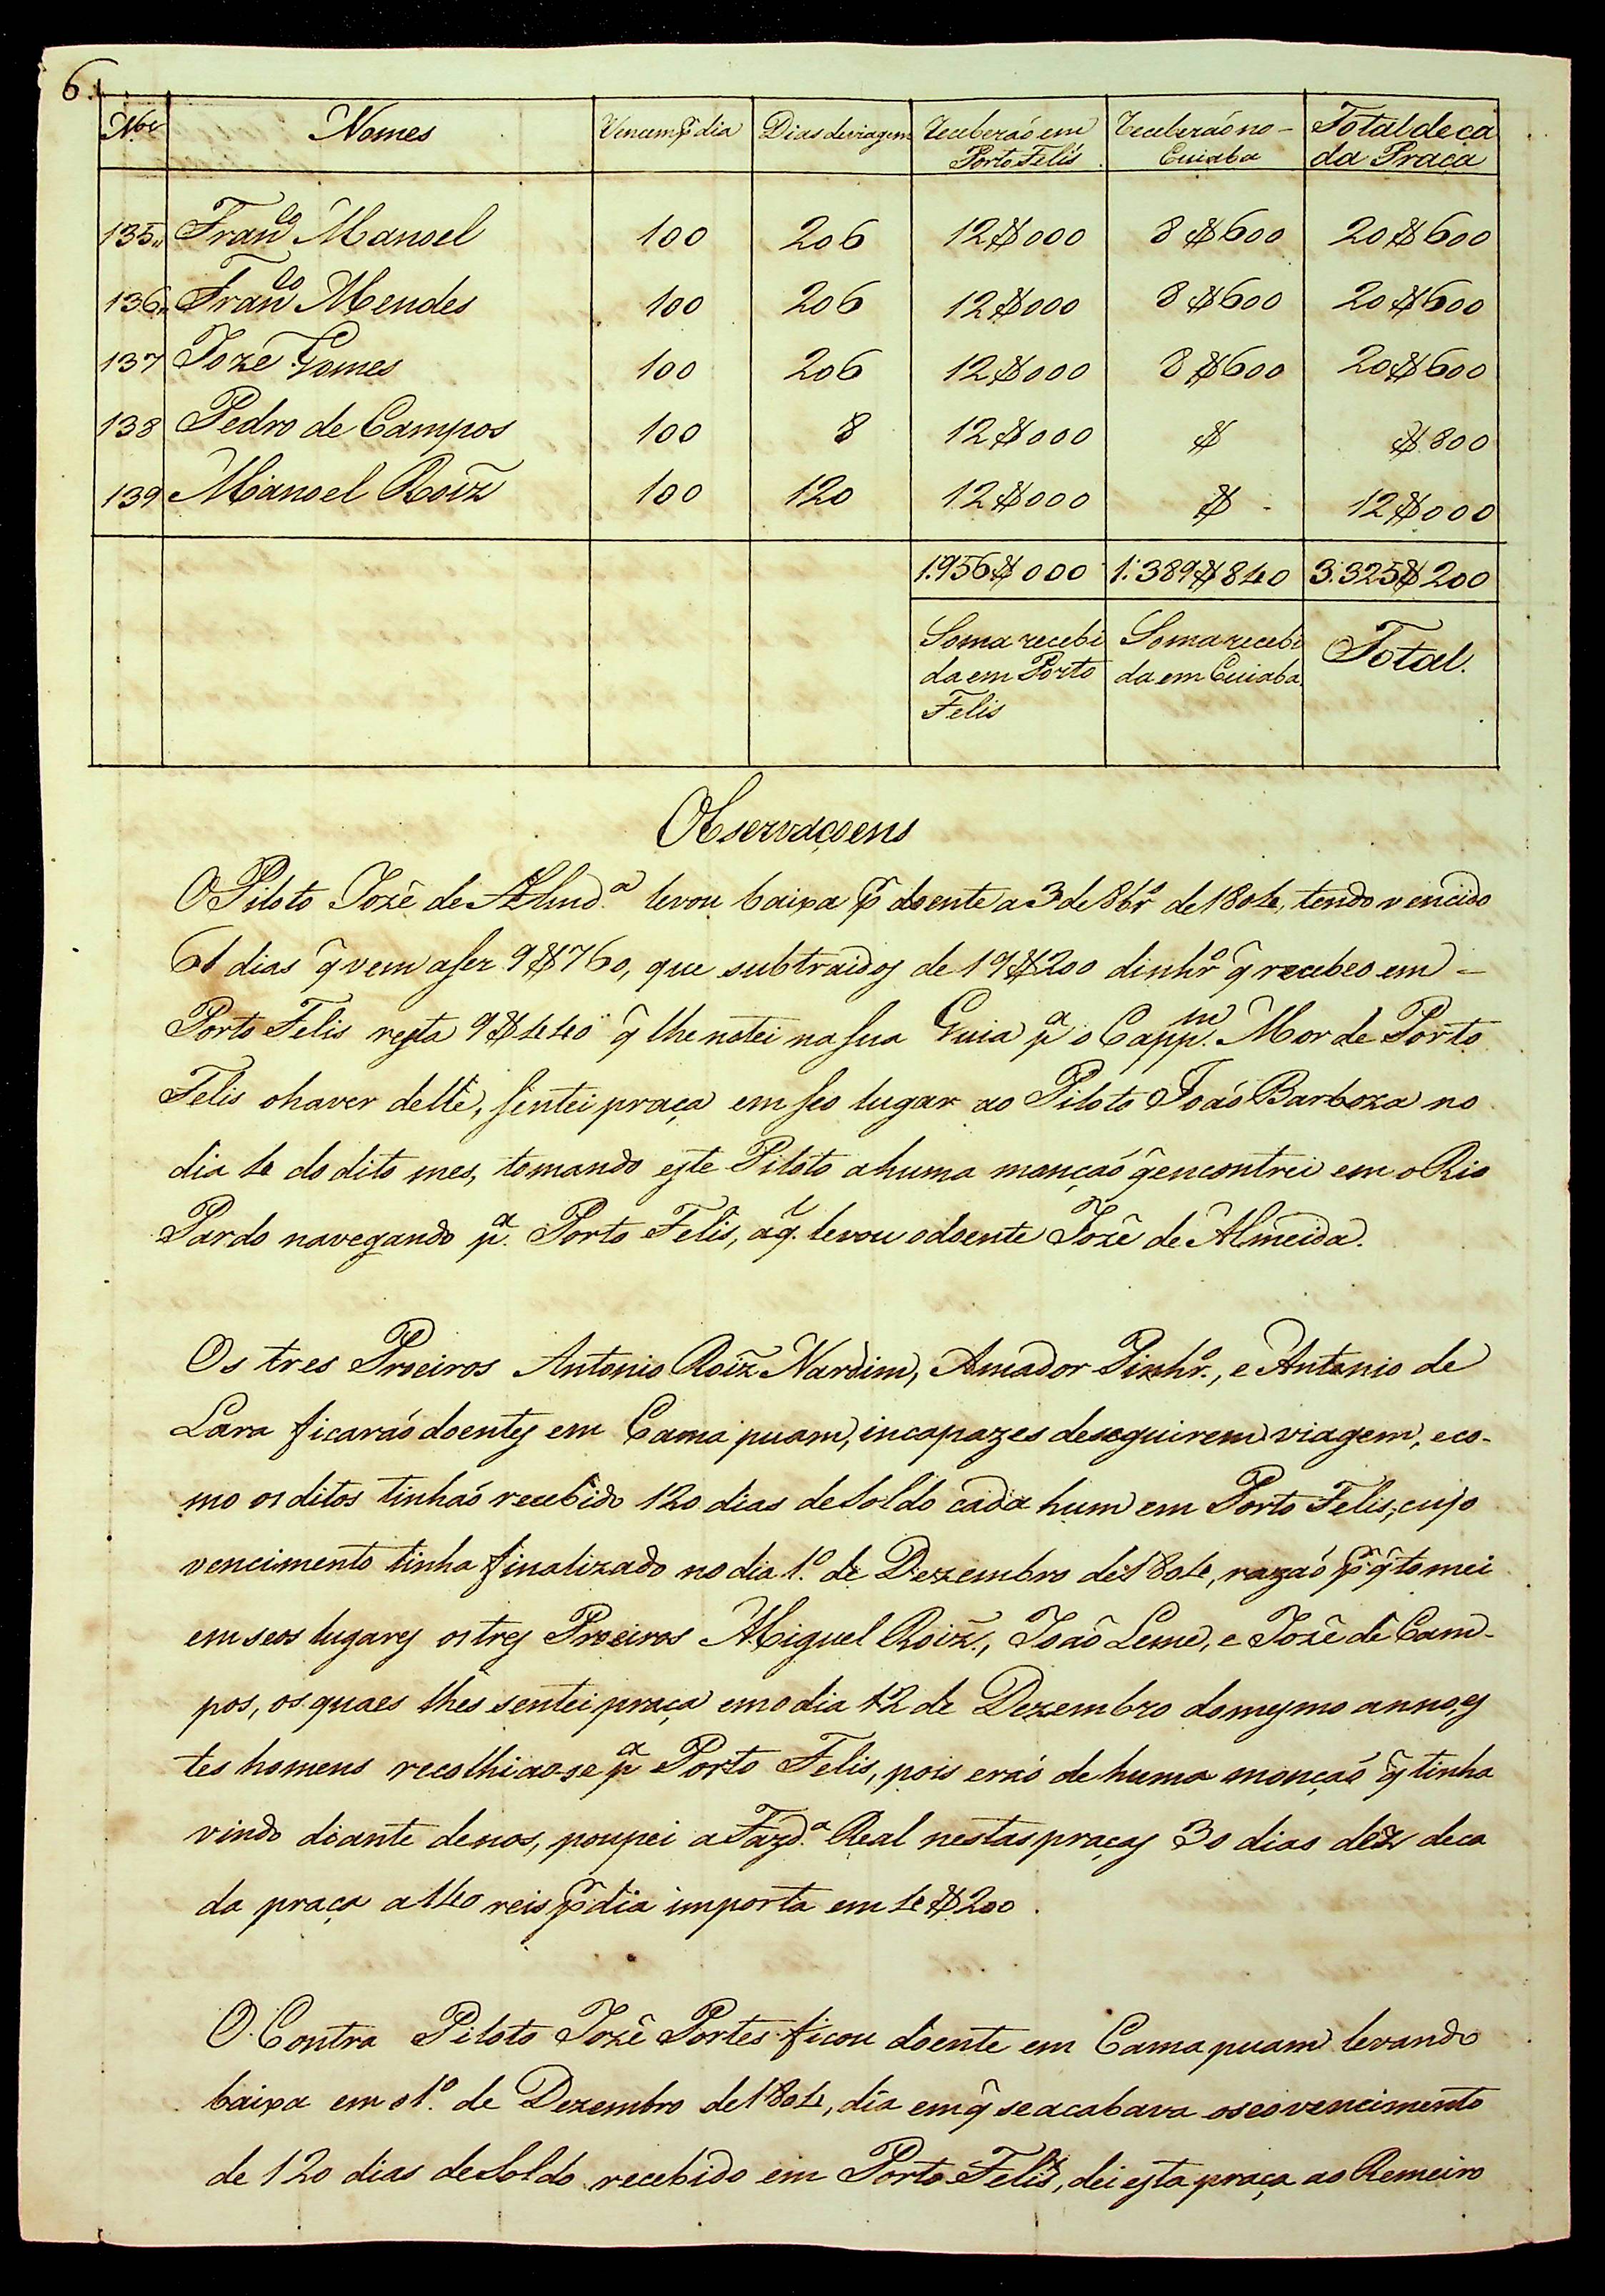 6.
N.os Nomes Vencem p.r dia Dias de viagem Receberaõ em Porto Felis Receberaõ no Cuiaba Total de cada Praça
135 Fran.co Manoel 100 206 12$000 8$600 20$600
136 Fran.co Mendes 100 206 12$000 8$600 20$600
137 Jozê Gomes 100 206 12$000 8$600 20$600
138 Pedro de Campos 100 8 12$000 $ $800
139 Manoel Roiz 100 120 12$000 $ 12$000
1.956$000 1:389$840 3:325$200
Soma recebida em Porto Felis Soma recebida em Cuiaba. Total.
Observaçoens
O Piloto Jozê de Almd.a levou baixa p.r doente a 3 de 8br.o de 1804, tendo vencido
61 dias q̃ vem a ser 9$760, que subtraidos de 19$200 dinhr.o q̃ recebeo em
Porto Felis resta 9$440 q̃ lhe notei na sua Guia p.a o Capp.m Mor de Porto
Felis o haver delle, sentei praça em seo lugar ao Piloto Joaõ Barboza no
dia 4 do dito mes, tomando este Piloto a huma monçaõ q̃ encontrei em o Rio
Pardo navegando p.a Porto Felis, a q.l levou o doente Jozê de Almeida.
Os tres Proeiros Antonio Roiz Nardim, Amador Pinhr.o, e Antonio de
Lara ficaraõ doentes em Camapuam, incapazes de seguirem viagem, eco-
mo os ditos tinhaõ recebido 120 dias de Soldo cada hum em Porto Felis, cujo
vencimento tinha finalizado no dia 1.o de Dezembro de 1804, razaõ p.r q̃ tomei
em seos lugares os tres Proeiros Miguel Roiz, Joaõ Leme, e Jozê de Cam-
pos, os quaes lhes sentei praça em o dia 12 de Dezembro do mesmo anno, es
tes homens recolhiao-se p.a Porto Felis, pois eraõ de huma monçaõ q̃ tinha
vindo diante de nos, poupei a Fazd.a Real nestas praças 30 dias dez de ca
da praça a 140 reis p.r dia importa em 4$200.
O Contra Piloto Jozê Portes ficou doente em Camapuam levando
baixa em o 1.o de Dezembro de 1804, dia em q̃ se acabava o seo vencimento
de 120 dias de Soldo recebido em Porto Felis, dei esta praça ao Remeiro